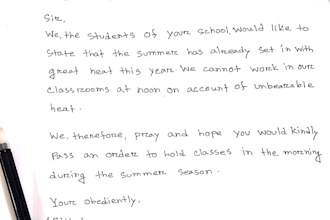 Sir,
We, the students of your school, would like to
state that the summer has already set in with
great heat this year. We cannot work in our
classrooms at noon on account of unbearable
heat.
We, therefore, pray and hope you would kindly
pass an order to hold classes in the morning
during the summer season.
Your obediently,